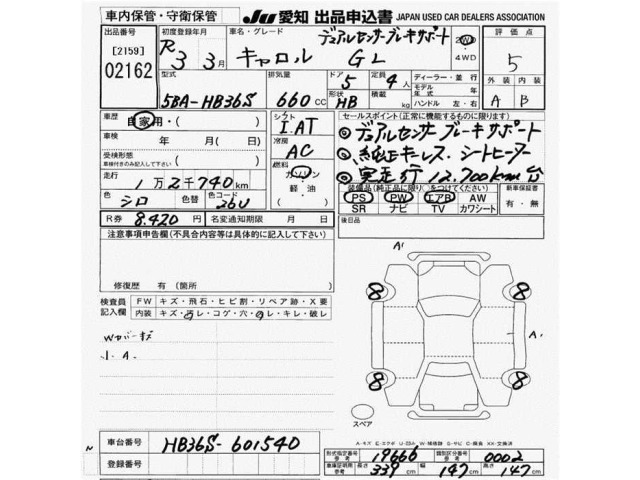 車内保管・守衛保管
JU 愛知 出品申込書 JAPAN USED CAR DEALERS ASSOCIATION
出品番号
[2159]
02162
初度登録年月
R 3年 3月
車名・グレード
デュアルセンサーブレーキサポート
キャロル GL
2WD
4WD
評価点
5
外装 内装
A B
型式
5BA-HB36S
排気量
660 cc
ドア
5
形状
HB
定員
4人
積載
kg
ディーラー・並行
モデル年式 年式
ハンドル 左・右
車歴
自家用・( )
車検
年 月( 日)
受検形態
車検付きのみ記入して下さい
( )
走行
1万2千740km
シフト
I.AT
冷房
AC
燃料
ガソリン
軽・油
( )
色
シロ
色替
色コード
26U
R券 8.420円
名変通知期限 月 日
セールスポイント(正常に機能するものに限ります)
デュアルセンサーブレーキサポート
純正キーレス・シートヒーター
実走行 12,700km台
装備品(純正品に限り)をつけてください
PS PW エアB AW
SR ナビ TV カワシート
新車保証書
有・無
後日品
注意事項申告欄(不具合内容等は具体的に記入して下さい)
修復歴 有(箇所 )
検査員記入欄
FW キズ・飛石・ヒビ割・リペア跡・X要
内装 キズ・汚レ・コゲ・穴・ハレ・キレ・破レ
Wカバーキズ
A1
A.
8 8
8 8
スペア
車台番号 HB36S-601540
登録番号
型式指定番号 参考 19666
類別区分番号 参考 0002
車庫証明用 参考 長さ 339cm 幅 147cm 高さ 147cm